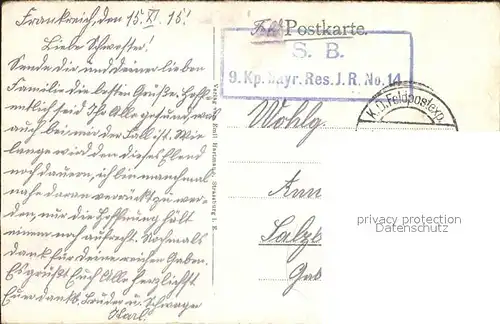 Frankreich, den 15. XI. 15!
Liebe Schwester!
Sende dir und deiner lieben
Familie die besten Grüße. Hof
fentlich seid Ihr Alle gesund, was
auch bei mir der Fall ist. Wie
lange wird den dieses Elend
noch dauern, ich bin manchmal
nahe daran verrückt zu wer-
den, nur die Hoffnung hält
einen noch aufrecht. Nochmals
dank für deine reichen Gaben.
Es grüßt Euch Alle herzlichst
Euer dankb. Bruder u. Schwager
Karl.
Verlag Emil Hartmann, Strassburg i. E.
Feld Postkarte.
S. B.
9. Kp. Bayr. Res. J. R. No. 14
K.D. Feldpostexp.
Wohlg
Ann
Salzb
Gab
privacy protection
Datenschutz